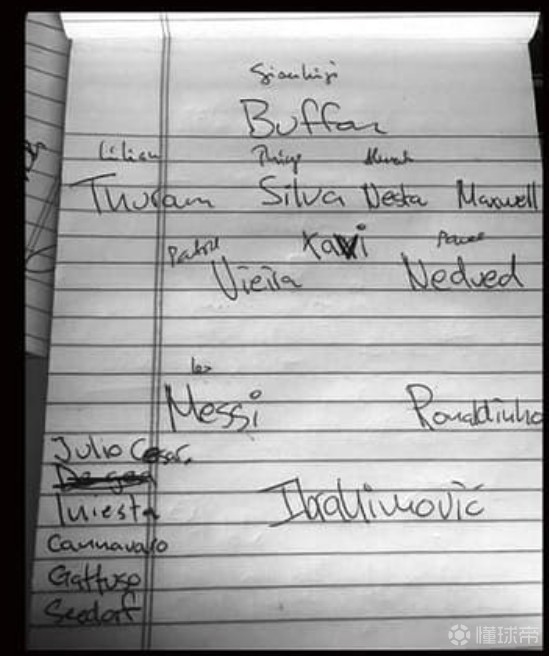 Gianluigi
Buffon
Lilian
Thuram Silva Nesta Maxwell
Xavi
Patrick Pavel
Vieira Nedved
Leo
Messi Ronaldinho
Julio Cesar.
Iniesta Ibrahimović
Cannavaro
Gattuso
Seedorf
懂球帝